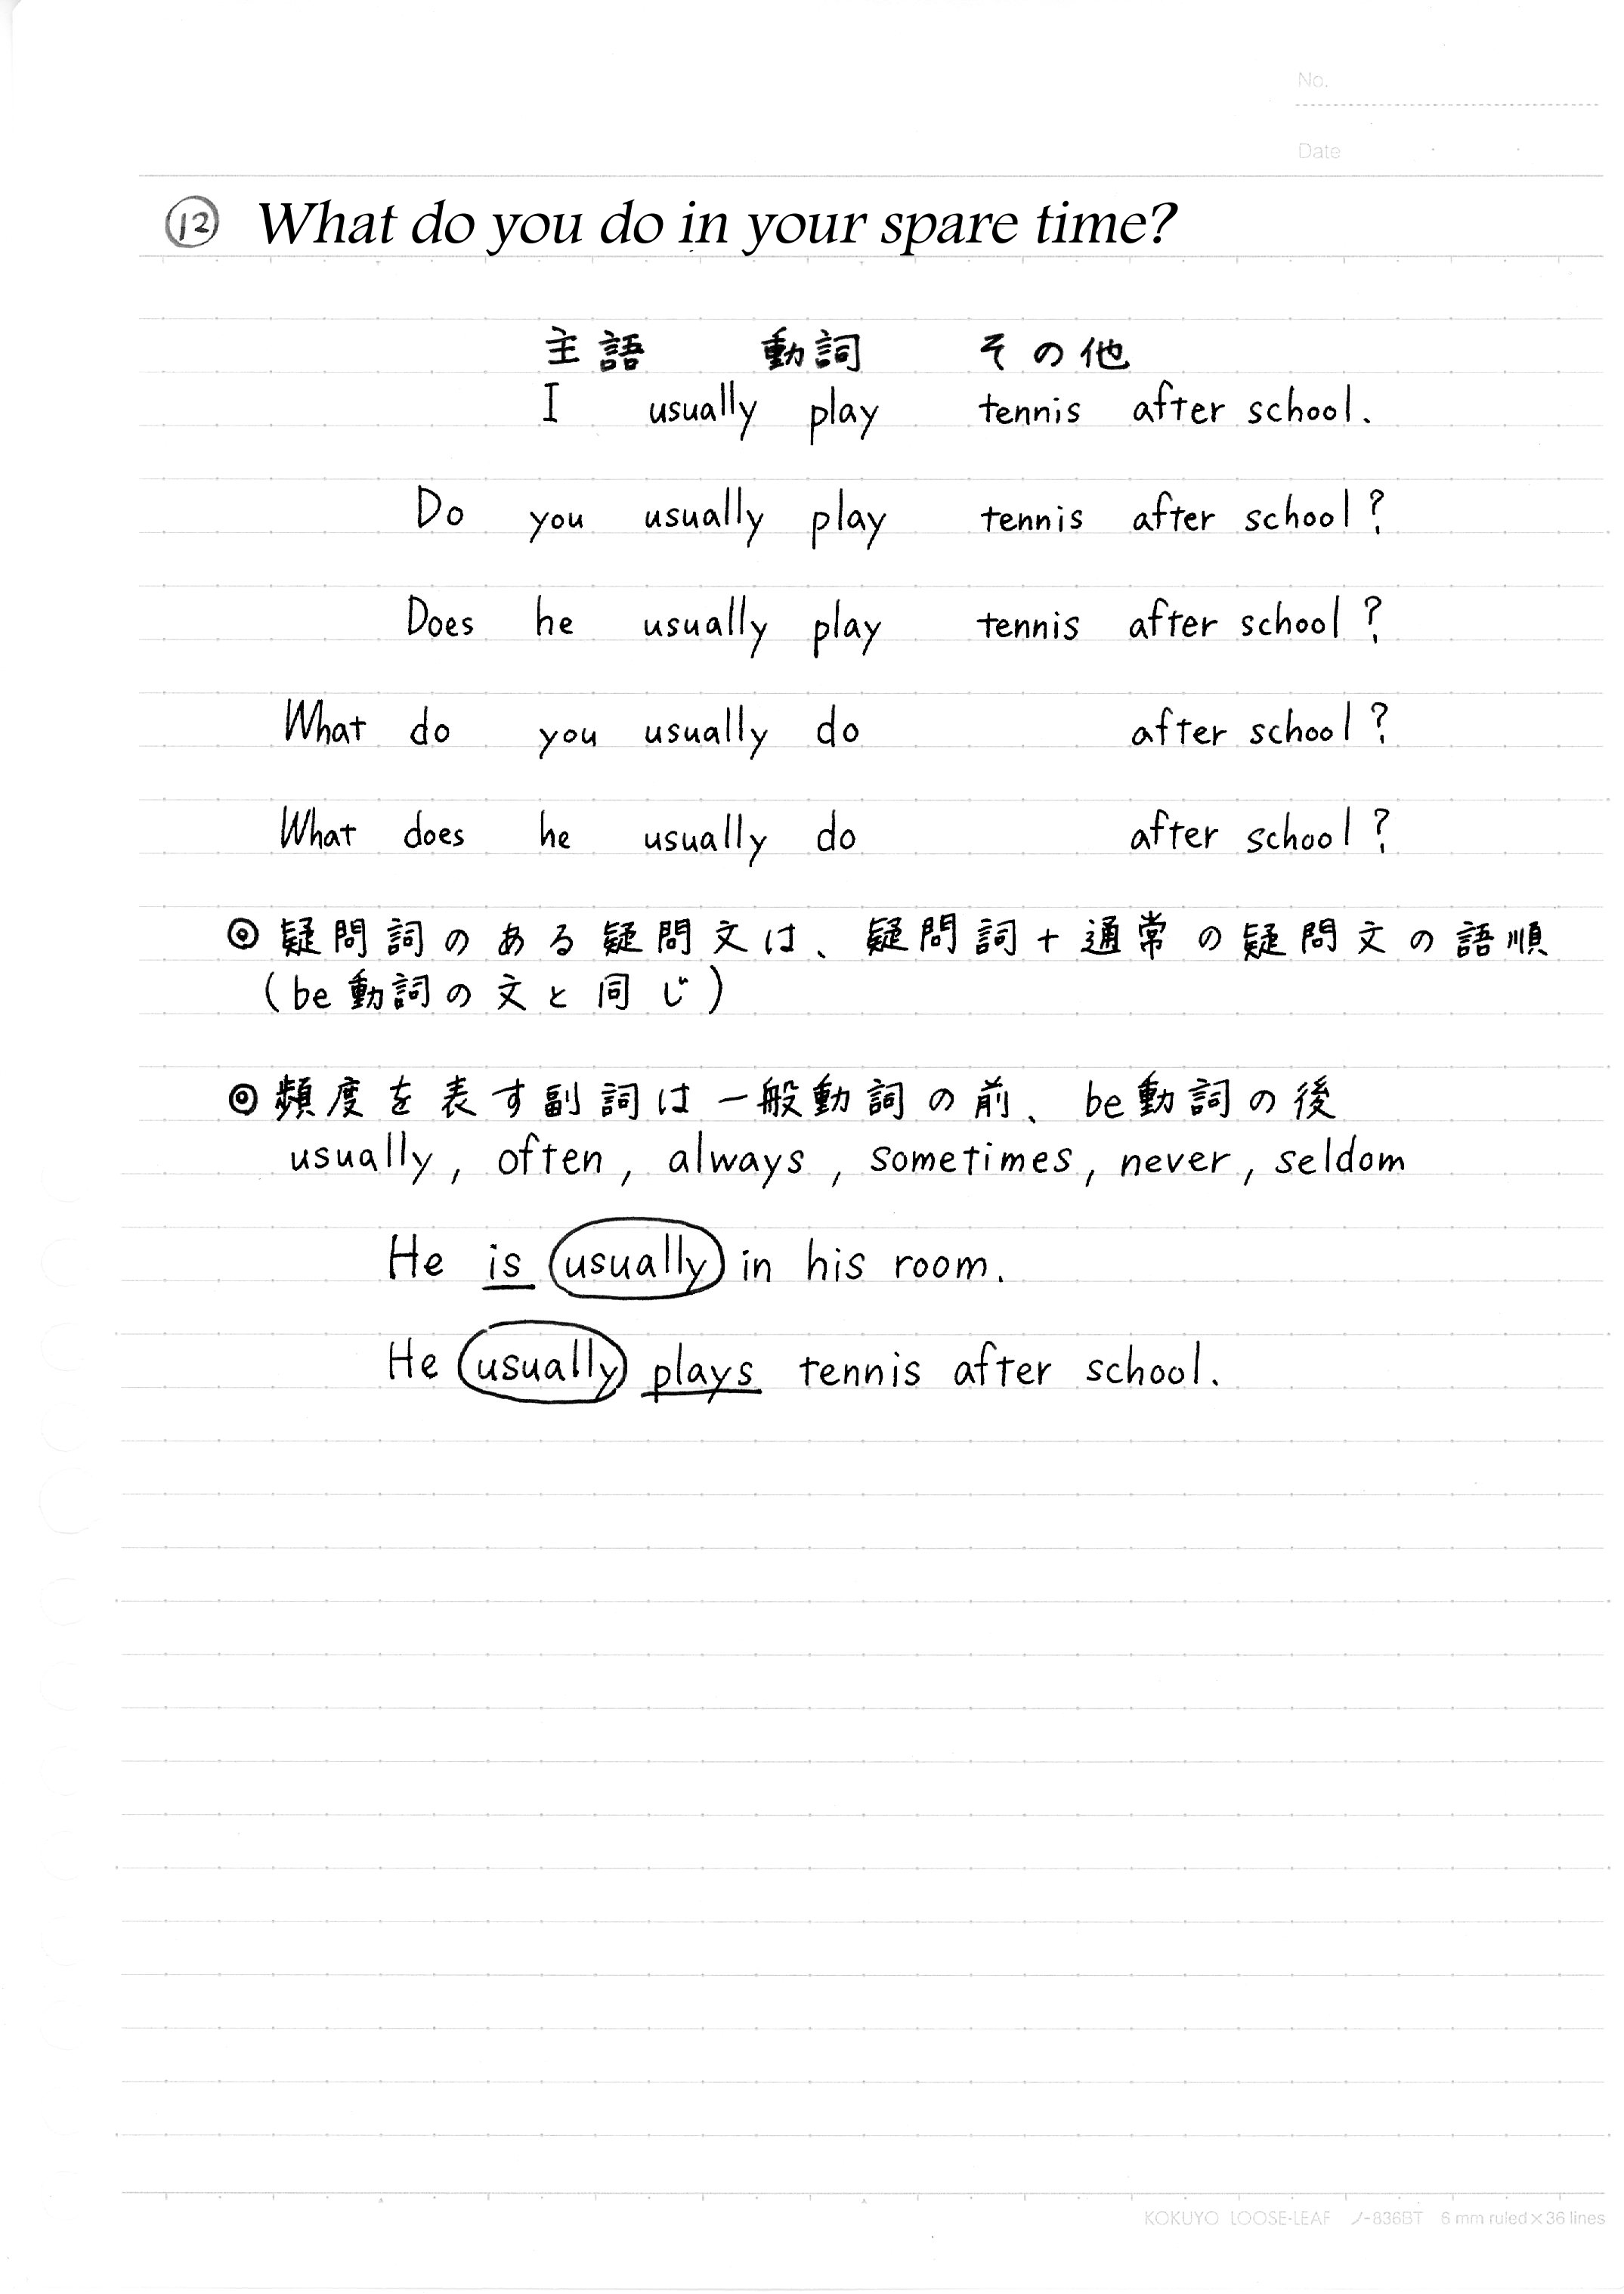 No.
Date
⑫ What do you do in your spare time?
主語 動詞 その他
I usually play tennis after school.
Do you usually play tennis after school?
Does he usually play tennis after school?
What do you usually do after school?
What does he usually do after school?
◎疑問詞のある疑問文は、疑問詞+通常の疑問文の語順
(be動詞の文と同じ)
◎頻度を表す副詞は一般動詞の前、be動詞の後
usually, often, always, sometimes, never, seldom
He is usually in his room.
He usually plays tennis after school.
KOKUYO LOOSE-LEAF ノ-836BT 6 mm ruled×36 lines